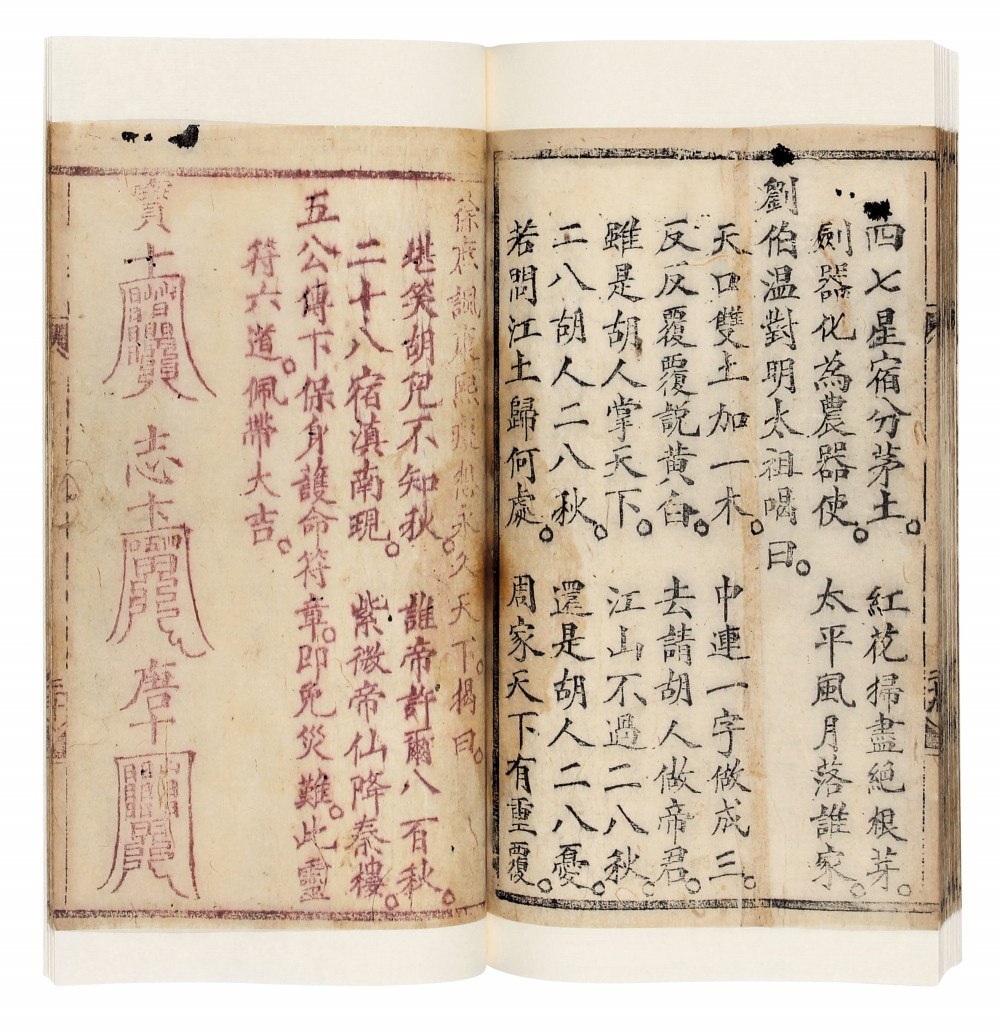 四七星宿分茅土。 紅花掃盡絕根芽。
劍器化為農器使。 太平風月落誰家。
劉伯温對明太祖唱曰。
天口雙土加一木。 中連一字做成三。
反反覆覆説黃白。 去請胡人做帝君。
雖是胡人掌天下。 江山不過二八秋。
二八胡人二八秋。 還是胡人二八憂。
若問江土歸何處。 周家天下有重覆。
徐 諷 熙 想永久天下。揭曰。
堪笑胡兒不知秋。 誰帝許爾八百秋。
二十八宿滇南現。 紫微帝仙降秦樓。
五公傳下保身護命符章。即免災難。此靈
符六道。佩帶大吉。
寶士
志士
唐士